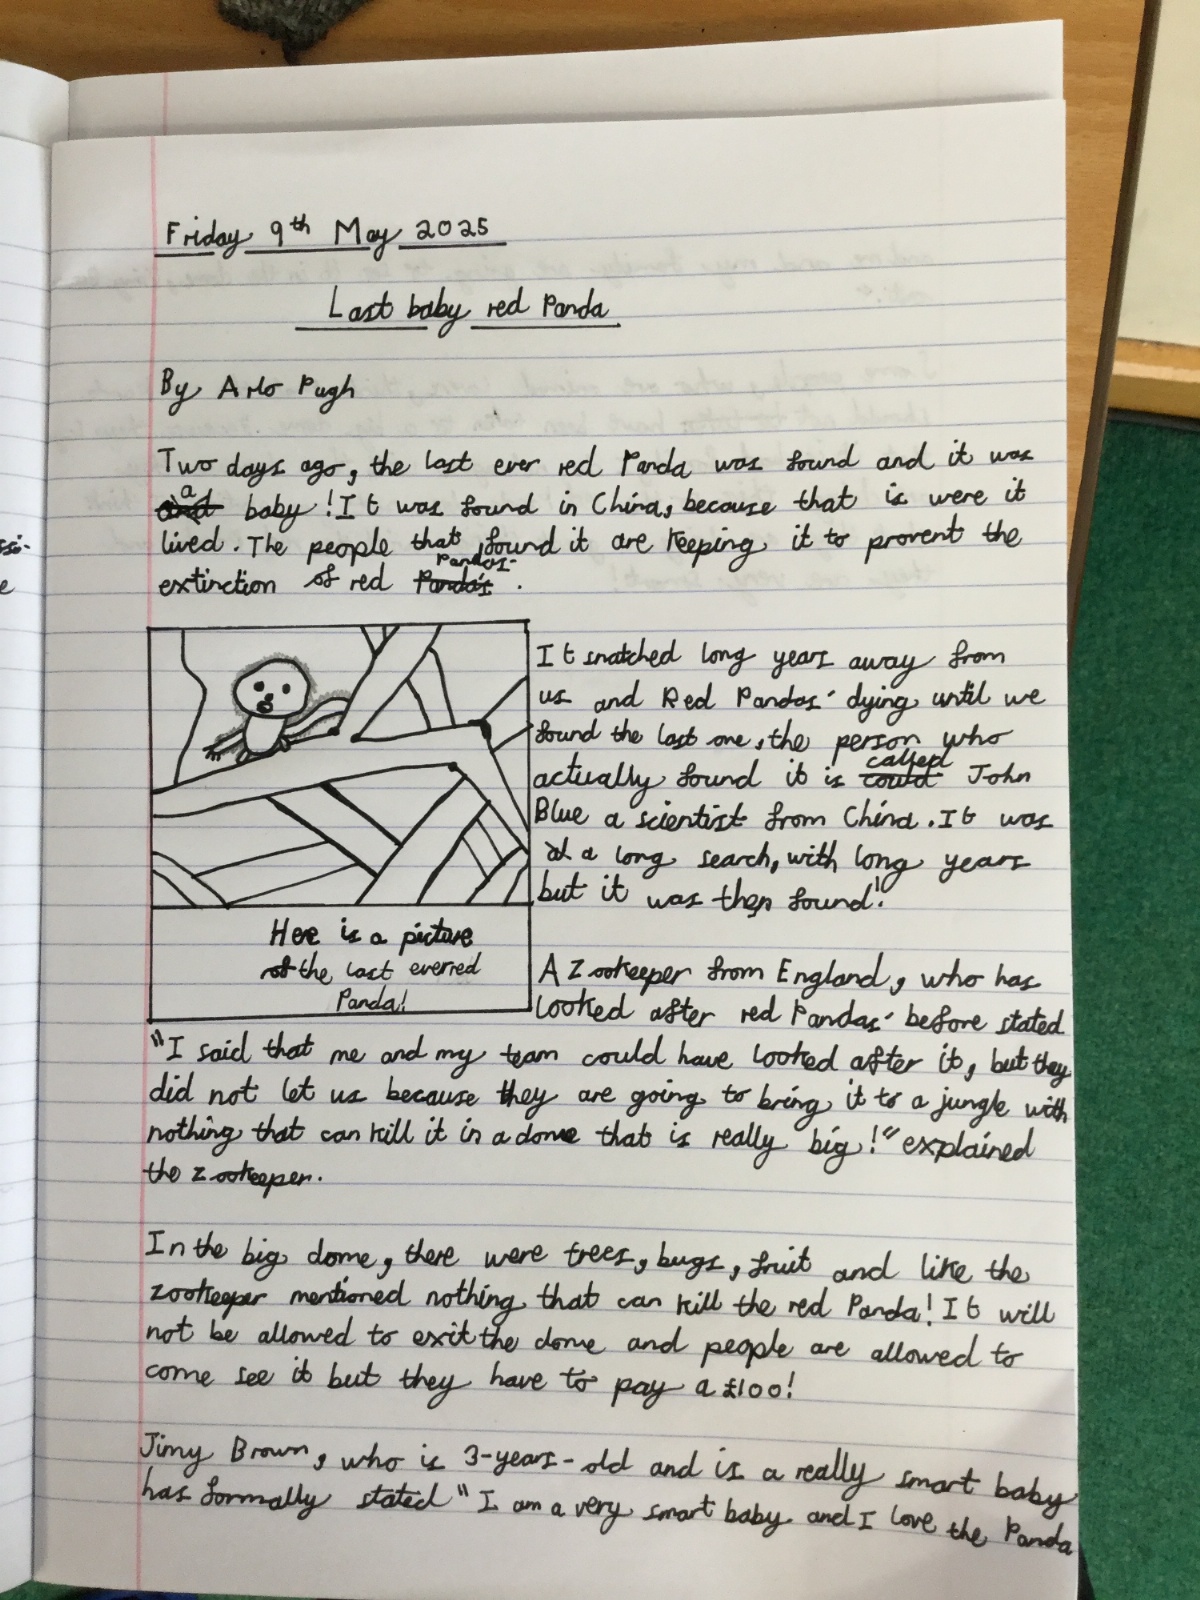 Friday 9th May 2025
Last baby red Panda
By Arlo Pugh
Two days ago, the last ever red Panda was found and it was
a baby! It was found in China, because that is were it
lived. The people that found it are keeping it to provent the
extinction of red Pandas.
It snatched long years away from
us and Red Pandas' dying until we
found the last one, the person who
actually found it is called John
Blue a scientist from China. It was
a long search, with long years
but it was then found!
Here is a picture
of the last ever red
Panda!
A Zookeeper from England, who has
looked after red Pandas' before stated
"I said that me and my team could have looked after it, but they
did not let us because they are going to bring it to a jungle with
nothing that can kill it in a dome that is really big!" explained
the zookeeper.
In the big dome, there were trees, bugs, fruit and like the
zookeeper mentioned nothing that can kill the red Panda! It will
not be allowed to exit the dome and people are allowed to
come see it but they have to pay a £100!
Jimy Brown, who is 3-years-old and is a really smart baby
has formally stated "I am a very smart baby and I love the Panda